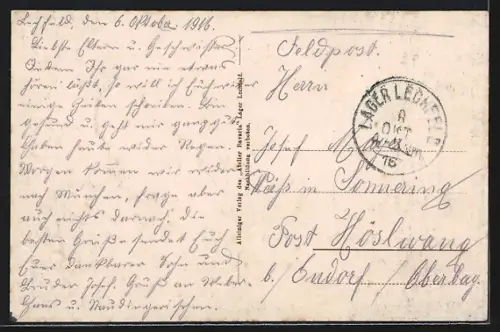 Lechfeld, den 6. Oktober 1916.
Liebste Eltern u. Geschwister
Indem Ihr gar nie etwas
hören läßt, so will ich Euch wieder
einige Zeilen schreiben. Bin
gesund u. geht mir ganz gut
haben heute wieder Regen.
Morgen können wir wieder
nach München, frage aber
auch nichts darnach. Die
besten Grüße sendet Euch
Euer dankbarer Sohn und
Bruder Josef. Gruß an Weber
Hans u.
Alleiniger Verlag des "Atelier Bavaria" Lager Lechfeld.
Nachbildung verboten.
Feldpost.
Herrn
Josef
in
Post Höslwang
b./ Endorf / Oberbay.
LAGER LECHFELD
6
OKT
16